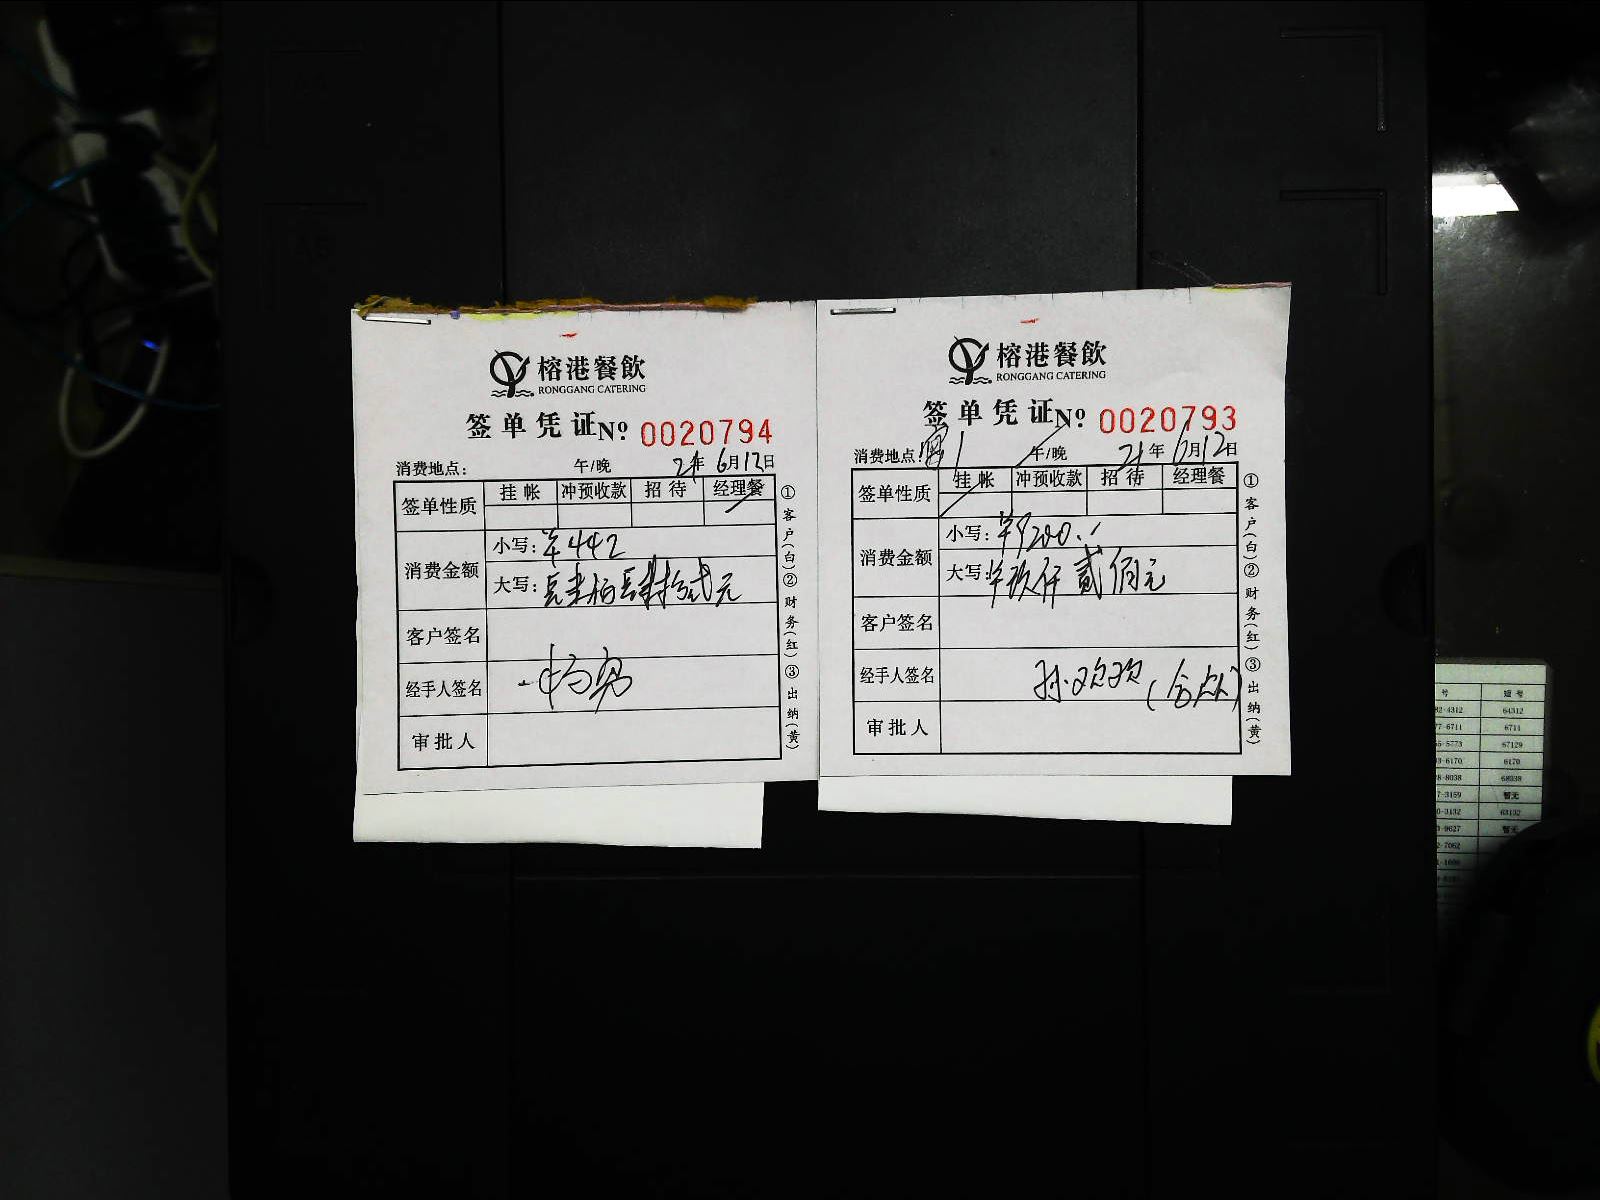 榕港餐飲
RONGGANG CATERING
签单凭证 Nº 0020794
消费地点: 午/晚 21年 6月12日
签单性质 挂帐 冲预收款 招待 经理餐
消费金额
小写: ¥442
大写: 肆佰肆拾贰元
客户签名
经手人签名
审批人
①客户(白)②财务(红)③出纳(黄)
榕港餐飲
RONGGANG CATERING
签单凭证 Nº 0020793
消费地点: 1 午/晚 21年 6月12日
签单性质 挂帐 冲预收款 招待 经理餐
消费金额
小写: ¥9200.
大写: 玖仟贰佰元
客户签名
经手人签名 孙欢欢
审批人
①客户(白)②财务(红)③出纳(黄)
号 短号
82-4312 64312
77-6711 6711
55-5773 67129
93-6170 6170
8-8038 68038
7-3159 暂无
0-3132 63132
3-9627 暂无
2-7062